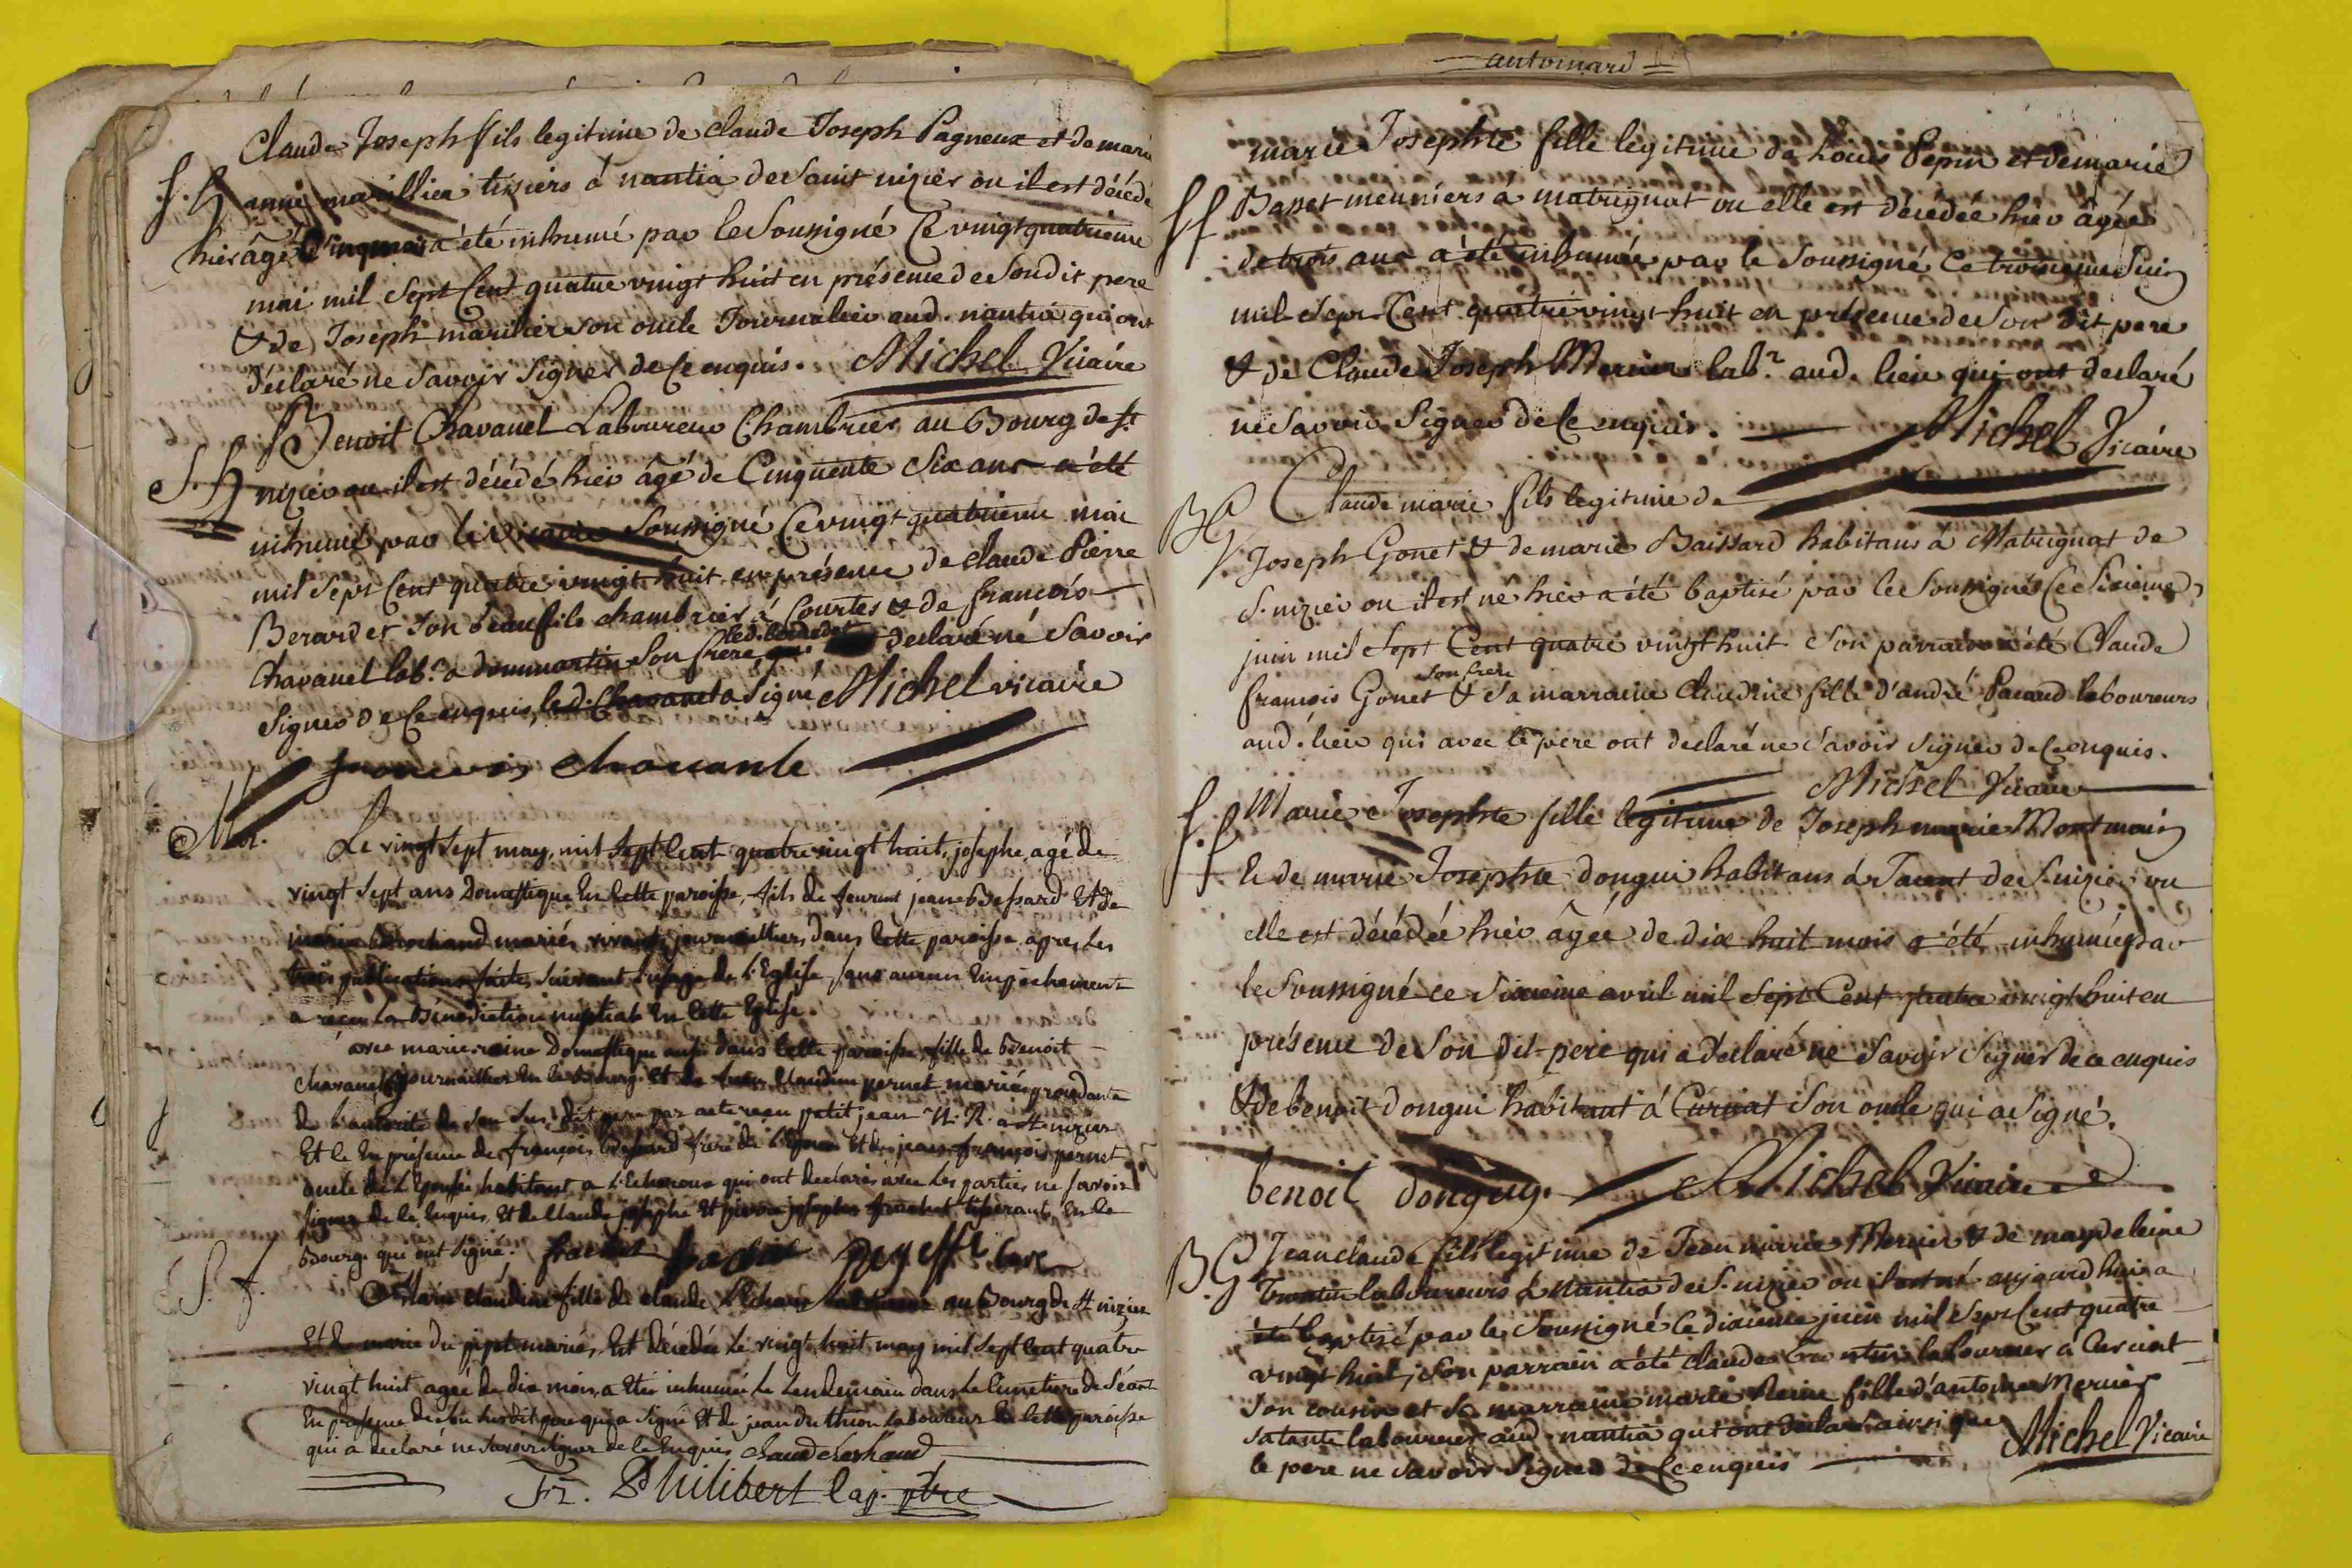 Claude Joseph fils legitime de claude Joseph Pagneux et de marie
S. H anne marillier tissiers á nantia de Saint nizier ou il est décédé
hier âgé Cinq mois a été inhumé par le Soussigné Ce vingt quatrieme
mai mil Sept Cent quatre vingt huit en présence de Sondit pere
& de Joseph marilier Son oncle Journalier aud. nantia qui ont
déclaré ne Savoir Signer de Ce enquis. Michel Vicaire
Benoit Chavanel Laboureur Chambrier au Bourg de St
S. H nizier ou il est décédé hier âgé de Cinquente Six ans a été
inhumé par le vicaire Soussigné Ce vingt quatrieme mai
mil Sept Cent quatre vingt huit en présence de claude Pierre
Berardet Son beaufils chambrier á Courtes & de francois
Chavanel labr. a dommartin Son frere, led. berardet declaré ne Savoir
Signer de Ce enquis, led. Chavanel a Signé Michel vicaire
francois chavanle
Mar. Le vingt Sept may, mil Sept Cent quatre vingt huit, josephe, agé de
vingt Sept ans Domestique En Cette paroisse, fils de feu jean Bessard Et de
marie Brochand mariés vivants journailliers dans Cette paroisse, apres Les
trois publications faites Suivant L'usage de L'Eglise Sans aucun Empechement
a reçu La Bénédiction nuptial En Cette Eglise.
avec marie reine Domestique aussi dans Cette paroisse, fille de Benoit
Chavanel journaillier En Ce Bourg. Et de Claudine pernet, mariés procedante
de L'autorité de Son Sus dit pere par acte reçu petit jean N. R. a St nizier
Et Ce En présence de françois Bessard frere de L'Epoux Et de jean françois pernet
oncle de L'Epouse habitant a L'Echeroux qui ont declarés avec Les parties ne Savoir
Signer de Ce Enquis, Et de Claude josephe Et pierre josephe frachet tisserants En Ce
Bourg. qui ont Signé. frachet Curé
S. f. Marie Claudine fille de claude au Bourg de St nizier
Et de marie du pupet mariés, Est décédée Le vingt huit may mil Sept Cent quatre
vingt huit agée de dix mois, a Eté inhumée Le Lendemain dans Le Cimetiere de Céant
En presence de Son Susdit pere qui a Signé Et de jean du thion Laboureur En Cette paroisse
qui a declaré ne Savoir Signer de Ce Enquis
Fz. Philibert Cap. ptre
antomard
marie Josephte fille legitime de Louis Pepin et de marie
Sf Banet meuniers a matrignat ou elle est décédée hier âgée
de trois ans a été inhumée par le Soussigné Ce troisieme Juin
mil Sept Cent quatre vingt huit en présence de Son dit pere
& de Claude Joseph Mercier labr. aud. lieu qui ont declaré
ne Savoir Signer de Ce enquis. Michel Vicaire
BG Claude marie fils legitime de
Joseph Gonet & de marie Baissard habitans à Matrignat de
S. nizier ou il est né hier a été baptisé par le Soussigné Ce Sixieme
juin mil Sept Cent quatre vingt huit Son parrain a été Claude
françois Gonet Son frere & Sa marraine Claudine fille d'andré Pacaud laboureurs
aud. lieu qui avec le pere ont declaré ne Savoir Signer de Ce enquis.
Michel Vicaire
S. f Marie Josephte fille legitime de Joseph marie Montmain
& de marie Josephte dongui habitans á Tarent de S. nizier ou
elle est décédée hier âgée de dix huit mois a été inhumée par
le Soussigné ce Sixieme avril mil Sept Cent quatre vingt huit en
présence de Son dit pere qui a déclaré ne Savoir Signer de ce enquis
& de benoit dongui habitant á Curciat Son oncle qui a Signé.
benoit donguy. Michel Vicaire
BG Jean claude fils legitime de Jean marie Mercier & de magdeleine
Trontin laboureurs à Nantia de S. nizier ou il est né aujourd hui a
été baptisé par le Soussigné Ce dixieme juin mil Sept Cent quatre
vingt huit, Son parrain a été claude Trontin laboureur á Curciat
Son cousin et Sa marraine marie Reine fille d'antoine Mercier
Sa tante laboureur aud. nantia qui ont declaré ainsi que
le pere ne Savoir Signer de Ce enquis Michel Vicaire